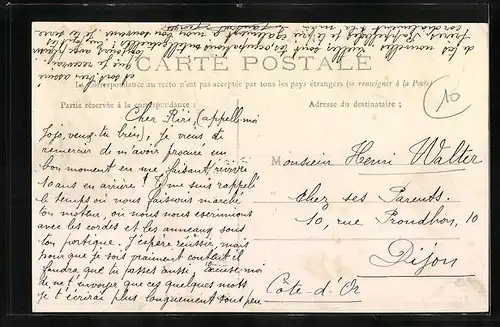 CARTE POSTALE
La correspondance au recto n'est pas acceptée par tous les pays étrangers (se renseigner à la Poste)
Partie réservée à la correspondance :
Adresse du destinataire :
10
Cher Riri, (appelle-moi
Jojo, veux-tu bien), Je viens te
remercier de m'avoir procuré un
bon moment en me faisant revivre
10 ans en arrière ! Je me suis rappelé
le temps où nous faisions marcher
ton moteur, où nous nous escrimions
avec les cordes et les anneaux sous
ton portique. J'espère réussir mais
pour que je sois vraiment content il
faudra que tu passes aussi. Excuse-moi
de ne t'envoyer que ces quelques mots
je t'écrirai plus longuement sous peu
et sois bien assuré
que je recevrai
Monsieur Henri Walter
chez ses Parents.
10, rue Proudhon, 10
Dijon
Côte-d'Or